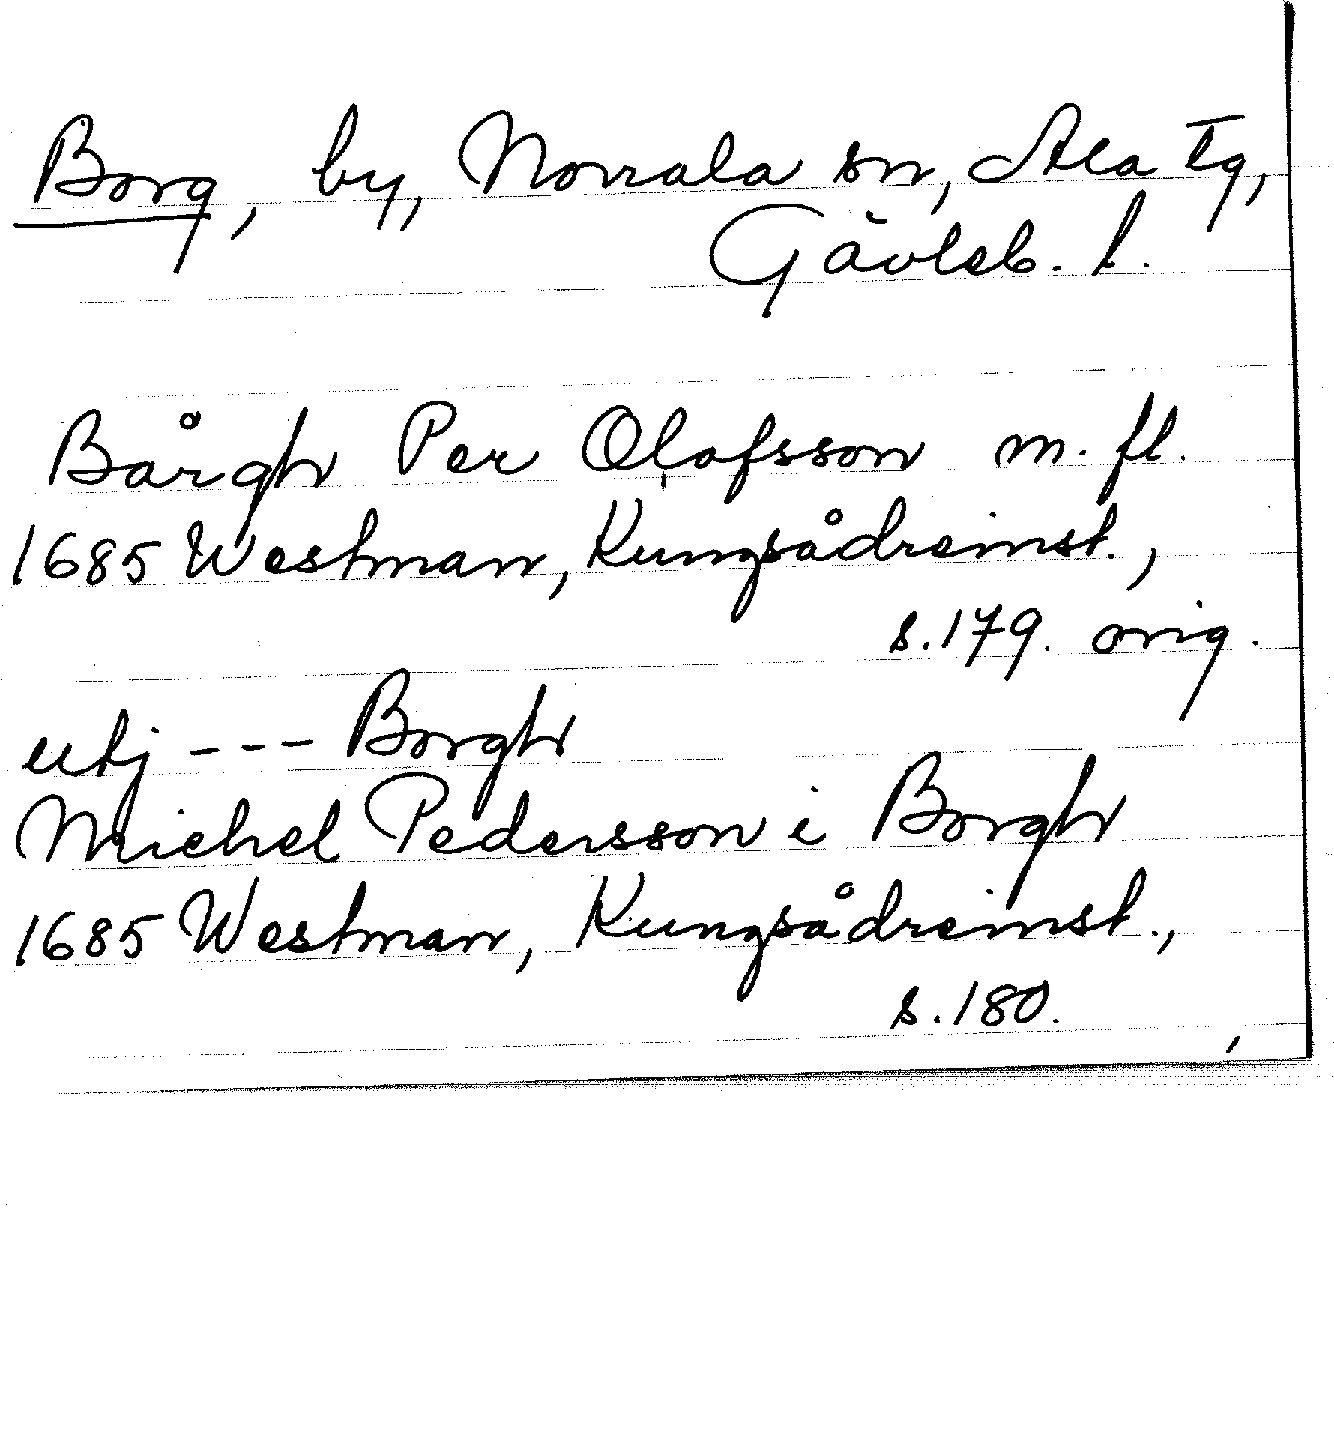 Borg, by, Norrala sn, Ala tg,
Gävleb. l.
Bårgh Per Olofsson m. fl.
1685 Westman, Kungsådreinst.,
s. 179. orig.
utj --- Borgh
Michel Pedersson i Borgh
1685 Westman, Kungsådreinst.,
s. 180.